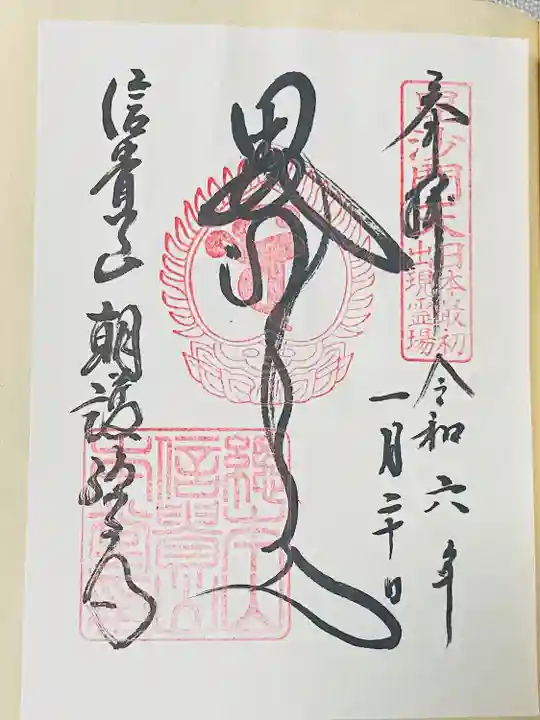 奉拝
毘沙門天
日本最初
出現霊場
令和六年
一月二十日
毘沙門天
信貴山
朝護孫子寺